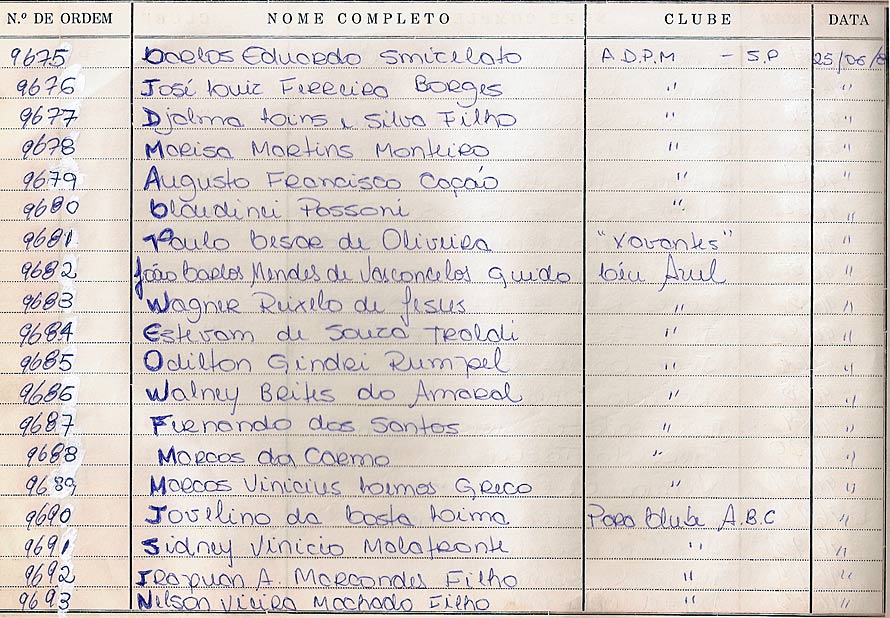 N.º DE ORDEM NOME COMPLETO CLUBE DATA
9675 Carlos Eduardo Smicelato A.D.P.M - S.P 25/06/
9676 José Luiz Ferreira Borges " "
9677 Djalma Lins e Silva Filho " "
9678 Marisa Martins Monteiro " "
9679 Augusto Francisco Cação " "
9680 Claudinei Possoni " "
9681 Paulo Cesar de Oliveira "Xavantes" "
9682 João Carlos Mendes de Vasconcelos Guido Céu Azul "
9683 Wagner Reixelo de Jesus " "
9684 Estevam de Souza Traldi " "
9685 Odilton Gindri Rumpel " "
9686 Walney Brites do Amaral " "
9687 Fernando dos Santos " "
9688 Marcos da Carmo " "
9689 Marcos Vinicius Lemos Greco " "
9690 Jovelino da Costa Lima Para Clube A.B.C "
9691 Sidney Vinicio Malatronte " "
9692 Irapuan A. Marcondes Filho " "
9693 Nelson Vieira Machado Filho " "